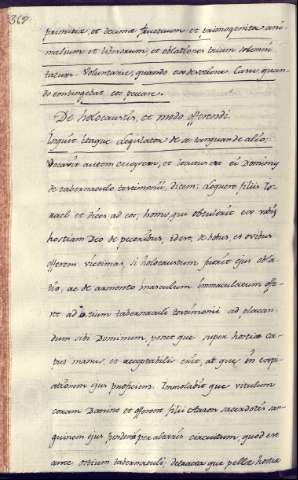 369.
primitiæ et decimæ fructuum et primogenita ani-
malium et librorum et oblationes trium solemni-
tatum. Voluntariæ, quando ex devotione Causa quan-
do contingebat eos peccare.
De holocaustis, et modo offerendi.
Loquit itaque Legislator de a
Vocavit autem Moysen, et locutus est ei Dominus
de tabernaculo testimonii, dicens: Loquere filiis Is-
rael et dices ad eos, homo qui obtulerit ex vobis
hostiam Deo de pecoribus, idest, de bobus, et ovibus
offerens victimas, si holocaustum fuerit ejus obla-
tio, ac de armento masculum immaculatum offe-
ret ad ostium tabernaculi testimonii ad placan-
dum sibi Dominum, ponet que super hostiæ ca-
put manus, et acceptabilis erit, atque in expi-
ationem ejus proficiens. Immolabit que vitulum
coram Domino et offerent filii Aaron sacerdotes san-
guinem ejus per altaris circuitum, quod est
ante ostium tabernaculi, detracta que pelle hostiæ